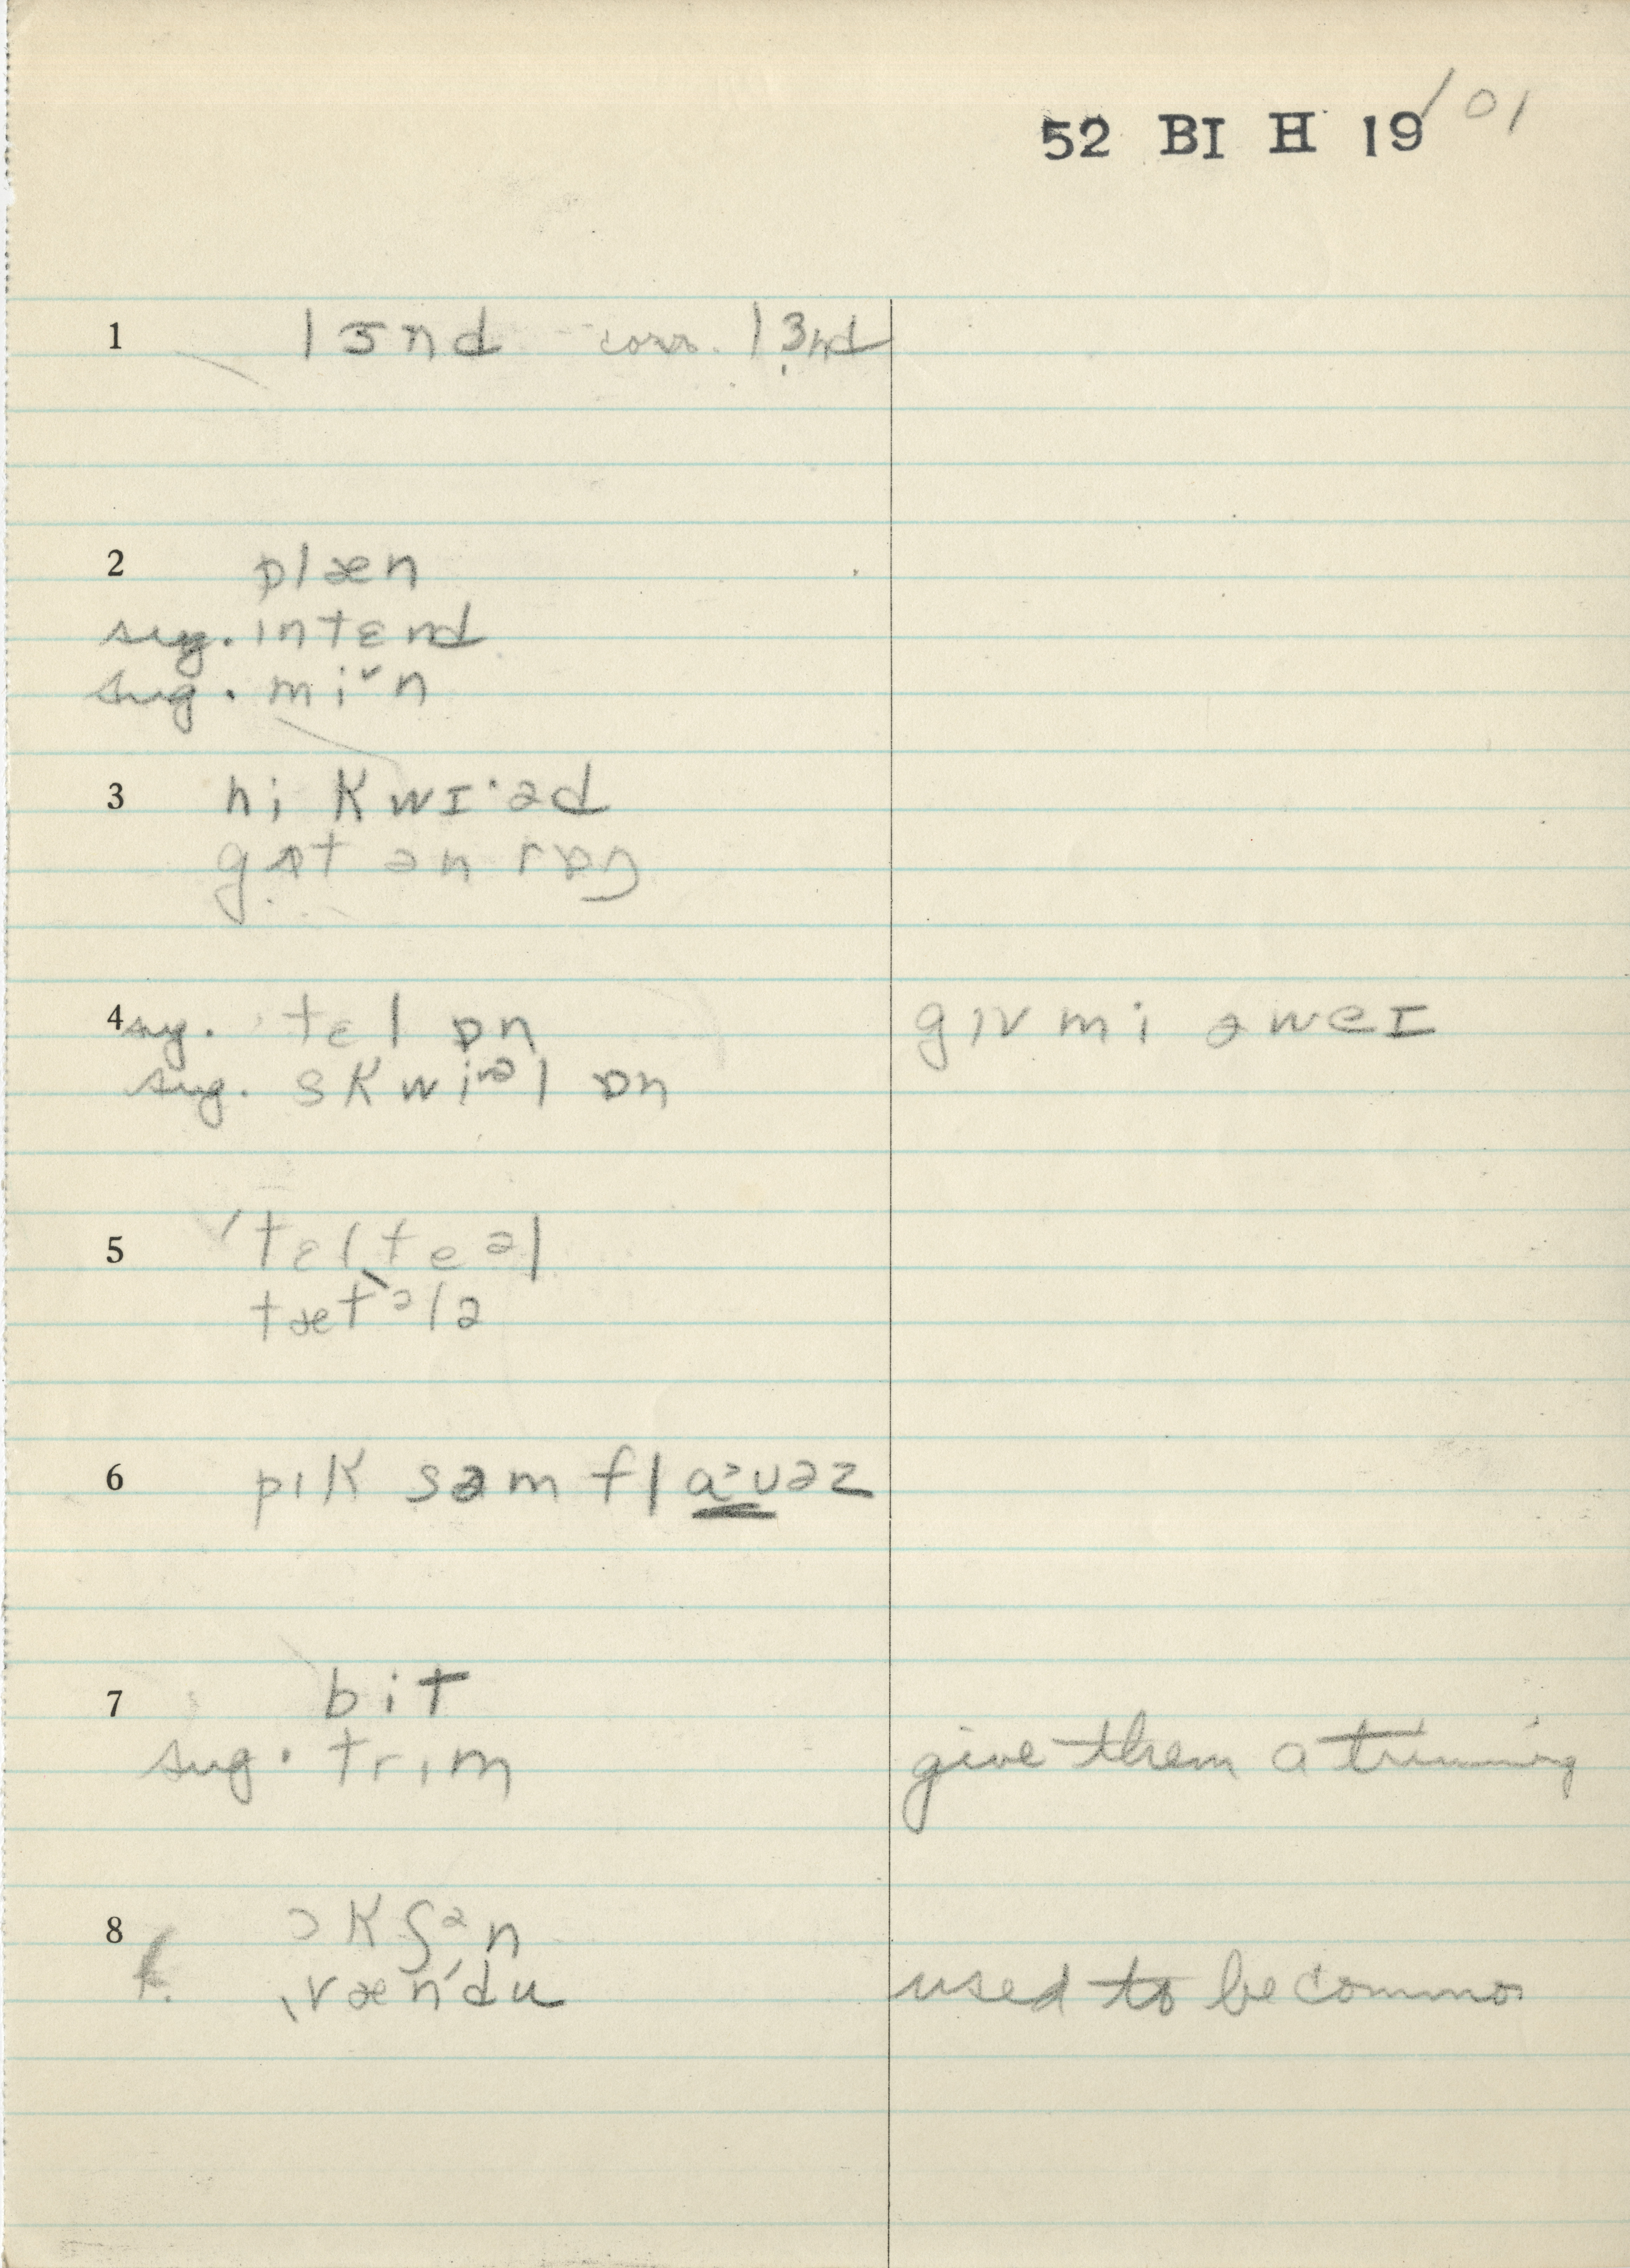 52 BI H 19/01
1 lɜnd corr. lɜ̣nd
2 plæn
sug. ɪntɛnd
sug. miˇn
3 hi kwɪ·əd
gɒt ən rɒŋ
4 sug. tɛl ɒn gɪv mi əweɪ
sug. skwiᵊl ɒn
5 ˈtɛlˌteəl
tætələ
6 pɪk səm flaᵊʊəz
7 bit
sug. trɪm give them a trimming
8 ɔkʃən
ˌvænˈdu used to be common